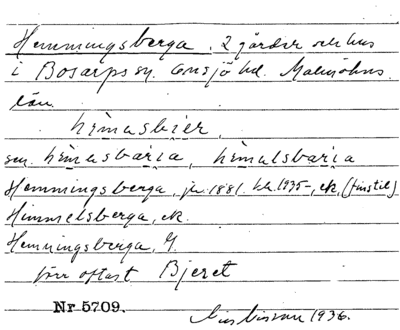 Hemmingsberga. 2 gårdar och hus
i Bosarps sn. Onsjö hd. Malmöhus
län.
himasbiər,
sen. himasbaria, himalsbaria
Hemmingsberga, jr. 1881. kk. 1935-, ek. (finstil)
Himmelsberga, ek.
Hemmingsberga, G.
förr oftast Bjeret
Nr 5709.
1936.